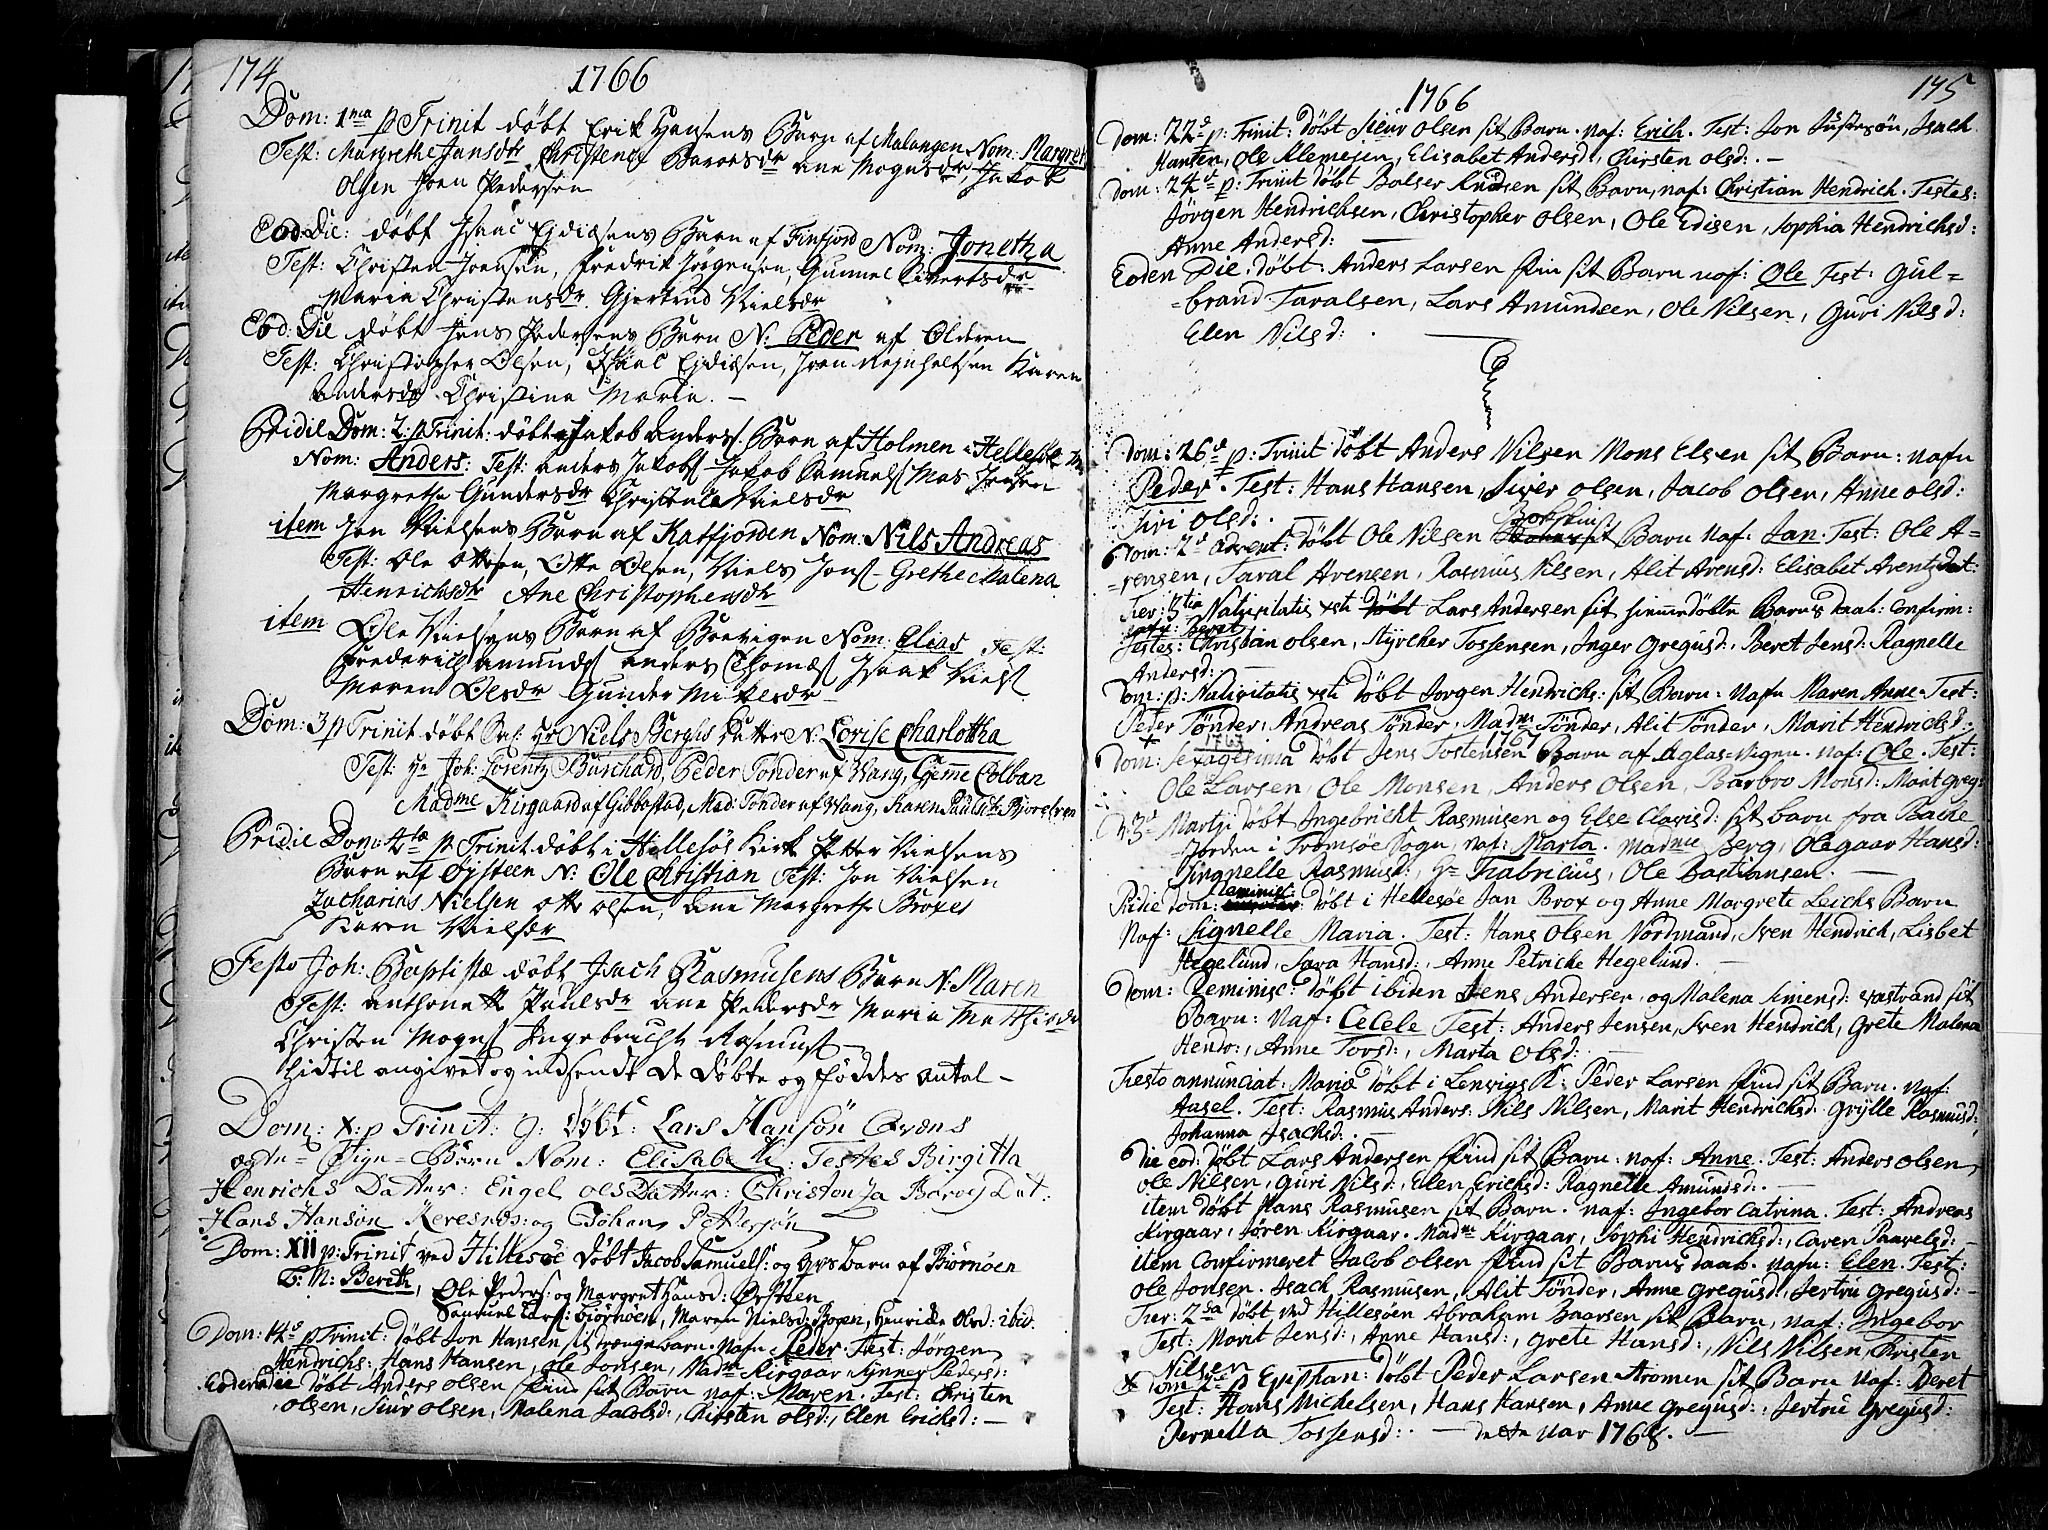 174
1766
Dom: 1ma p Trinit døbt Erik Hansens Barn af Malangen Nom: Margret
Test: Margrethe Jansdr Christence Baroesdr Ane Mognsdr, Jakob
Olsen Joen Pedersen
Eod: Die: døbt Isaac Ejdissens Barn af Finfjord Nom: Jonetha
Test: Christen Joensen, Fredrik Jørgensen, Gunnel Sivertsdr
Maria Christensdr Gjertrud Nielsdr
Eod: Die døbt Hens Pedersens Barn N: Peder af Olderen
Test: Christopher Olsen, Isaac Ejdissen, Joen Rejnholtsen Karen
Andersdr Christina Maria. –
Pridie Dom: 2 p Trinit: døbt Jakob Anders: Barn af Holmen i Hellesøe
Nom: Anders: Test: Anders Jakobs Jakob Samuels Mas Jensen
Margrethe Gundersdr Christence Nielsdr
item Jon Nielsens Barn af Katfjorden Nom: Nils Andreas
Test: Ole Ottesen, Otte Olsen, Niels Jons- Grethe Malena
Henrichsdr Ane Christophersdr
item Ole Nielsens Barn af Boevigen Nom: Elias Test:
Frederich Amunds Anders Thomæs Isaak Niels
Maren Olsdr Gunder Mikelsdr
Dom: 3 p Trinit døbt Hr Niels Bergs Datter N: Lovise Charlotha
Test: Hr Joh: Lorentz Burchard, Peder Tonder af Wang, Hemme Colban
Madme Kirgaard af Gibbostad, Mad: Tønder af Wang, Karen
Pridie Dom: 4ta p Trinit døbt i Hellesøe Kirk Petter Nielsens
Barn af Øysteen N: Ole Christian Test: Jon Nielsen
Zacharias Nielsen Otte Olsen, Ane Margrethe Broxes
Karen Nielsdr
Festo Joh: Baptistæ døbt Isach Rasmusens Barn N: Maren
Test: Anthonette Paulsdr Ane Pedersdr Maria Matthisdr
Christen Mogns Ingebricht Rasmus
hidtil angivet og indsendt de døbte og føddes Antal –
Dom: X: p Trinit: døbt: Lars Hansøn
Ægte Barn Nom: Elisabeth: Testes Birgitta
Henrichs Datter: Engel Ols Datter: Baroes Dat:
Hans Hansøn Keresnes: og Johan Pettersøn
Dom: XII p: Trinit ved Hillesøe Døbt Jacob Samuels: og Barn af Biornøen
T: N: Bereth, Ole Peders: og Margret Hansd: Øysteen
Samuel Lars: Biornøen, Maren Nielsd: Bogen, Henricke Olsd: ibid.
Dom: 14de p Trinit: døbt Jon Hansen sit Barn. Nafn Peder Test: Jørgen
Hendrichs:, Hans Hansen, Ole Jonsen, Madm Kirgaar Pedersd:
Eodem die døbt Anders Olsen Find sit Barn naf: Maren. Test: Christen
Olsen, Siur Olsen, Malena Jacobsd:, Chirsten Olsd:, Elen Erichsd: –
1766
175
Dom: 22de p: Trinit: døbt Siur Olsen sit Barn. naf: Erich. Test: Jon Justesøn, Isach
Hansen, Ole Klemejen, Elisabet Andersd:, Chirsten Olsd: –
Dom: 24de p: Trinit døbt Balser Knudsen sit Barn, naf: Christian Hendrich. Testes:
Jørgen Hendrichsen, Christopher Olsen, Ole Edisen, Sophia Hendrichsd:
Anne Andersd:
Eoden Die. døbt: Anders Larsen Fin sit Barn naf: Ole Test: Gul=
=brand Taralsen, Lars Amundsen, Ole Nilsen, Guri Nilsd:
Elen Nilsd:
Dom: 26de p: Trinit døbt Anders Nilsen Mons Elsen sit Barn: nafn
Peder. Test: Hans Hansen, Siver Olsen, Jacob Olsen, Anne Olsd:
Siri Olsd:
Dom: 2de Advent: døbt Ole Nilsen sit Barn Naf: Jan. Test: Ole A=
=rensen, Taral Arensen, Rasmus Nilsen, Alit Arensd: Elisabet Arentz Dat:
Fer: 3tia Nativitatis xsti Lars Andersen sit hiemmedøbte Barns daab: Confirm:
Beret
Testes: Christian Olsen, Styrcher Tossensen, Inger Gregusd:, Beret Jensd: Ragnelle
Andersd:
Dom: p: Nativitatis xsti døbt Jorgen Hendrichs: sit Barn: Nafn Maren Anne. Test:
Peder Tønder, Andreas Tønder, Madm Tønder, Alit Tønder, Marit Hendrichsd:
1767
Dom: Sexagesima døbt Jens Tostensen Barn af Aglas=vign. naf: Ole. Test:
Ole Larsen, Ole Monsen, Anders Olsen, Barbro Monsd: Marit Greg:
D: 3de Martji døbt Ingebricht Rasmusen og Else Clavisd: sit barn fra
Jorden i Tromsøe Sogn, naf: Marta. Madme Berg, Olegaar Hansd:
Ringnelle Rasmusd:, Hr Frabricius, Ole Bastiansen. –
Pridie Dom: Reminisc: døbt i Hellesøe Jan Brox og Anne Margrete Leichs Barn
Naf: Signelle Maria. Test: Hans Olsen Nordmand, Sven Hendrich, Lisbet
Hegelund, Sara Hansd:, Anne Petricke Hegelund.
Dom: Reminisc: døbt ibiden Jens Andersen, og Malena Simensd: Vastrand sit
Barn: Naf: Cecele Test: Anders Jensen, Sven Hendrich, Grete Malena
Hendr:, Anne Torsd:, Marta Olsd:
Festo annunciat: Mariæ døbt i Lenvigs K: Peder Larsen Find sit Barn. Naf:
Aasel. Test: Rasmus Anders. Nils Nilsen, Marit Hendrichsd: Grylle Rasmusd:,
Johanna Isachsd:
Die eod: døbt Lars Andersen Find sit Barn: naf: Anne. Test: Anders Olsen,
Ole Nilsen, Guri Nilsd:, Elen Erichsd: Ragnelle Amundsd: –
item døbt Hans Rasmusen sit Barn. naf: Ingebor Catrina. Test: Andreas
Kirgaar, Søren Kirgaar. Madm Kirgaar, Sophi Hendrichsd:, Caren Paavelsd: –
item Confirmeret Jacob Olsen Find sit Barns daab. Nafn: Elen. Test:
Ole Jonsen. Isach Rasmusen, Alit Tønder, Anne Gregusd:, Jertru Gregusd: –
Fer: 2da døbt ved Hillesøen Abraham Baarsen sit Barn, naf: Ingebor
Test: Marit Jensd:, Anne Hansd:, Grete Hansd:, Nils Nilsen, Christen
Nilsen
x Dom 2de p Epiphan: døbt Peder Larsen Stromen sit Barn Naf: Beret
Test: Hans Michelsen, Hans Hansen, Anne Gregusd:, Jertru Gregusd:
Pernella Tossensd: – dette Aar 1768.